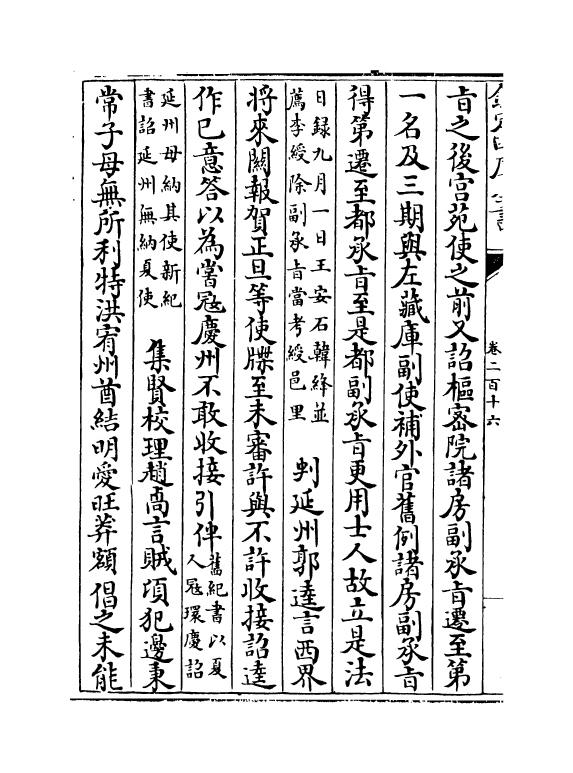 卷二百十六
旨之後宫苑使之前又詔樞密院諸房副承旨遷至第
一名及三期與左藏庫副使補外官舊例諸房副承旨
得第遷至都承旨至是都副承旨更用士人故立是法
日録九月一日王安石韓絳並
薦李綬除副承旨當考綬邑里
判延州郭逵言西界
將來關報賀正旦等使牒至未審許與不許收接詔逵
作已意答以為嘗冦慶州不敢收接引伴
舊紀書以夏
人冦環慶詔
延州毋納其使新紀
書詔延州無納夏使
集賢校理趙卨言賊項犯邊秉
常子母無所利特洪宥州酋結明愛旺莽額倡之未能